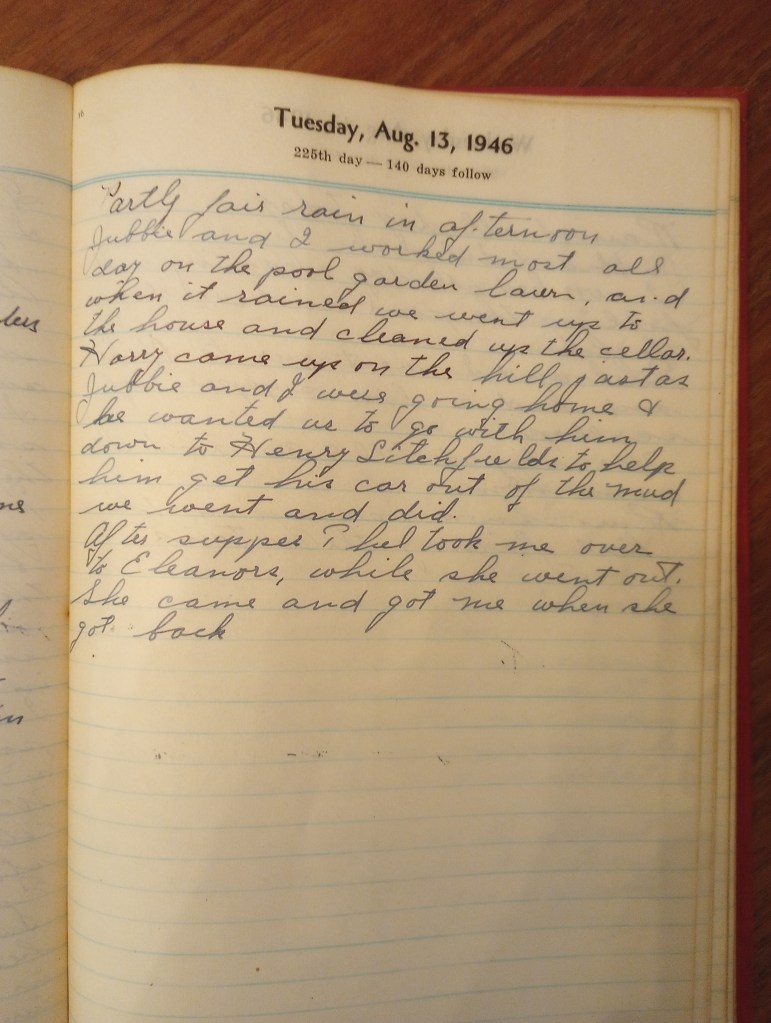 Tuesday, Aug. 13, 1946
225th day — 140 days follow
Partly fair rain in afternoon
Jubbie and I worked most all
day on the pool garden lawn, and
when it rained we went up to
the house and cleaned up the cellar.
Harry came up on the hill just as
Jubbie and I were going home &
he wanted us to go with him
down to Henry Litchfields to help
him get his car out of the mud
we went and did.
After supper Phel took me over
to Eleanors, while she went out.
She came and got me when she
got back